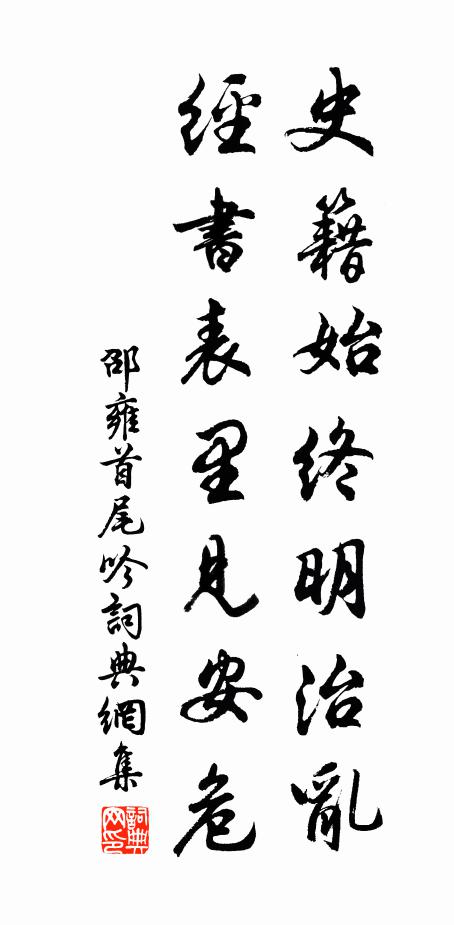 史籍始終明治亂
經書表里見安危
邵雍首尾吟詞典網集
詞典网印